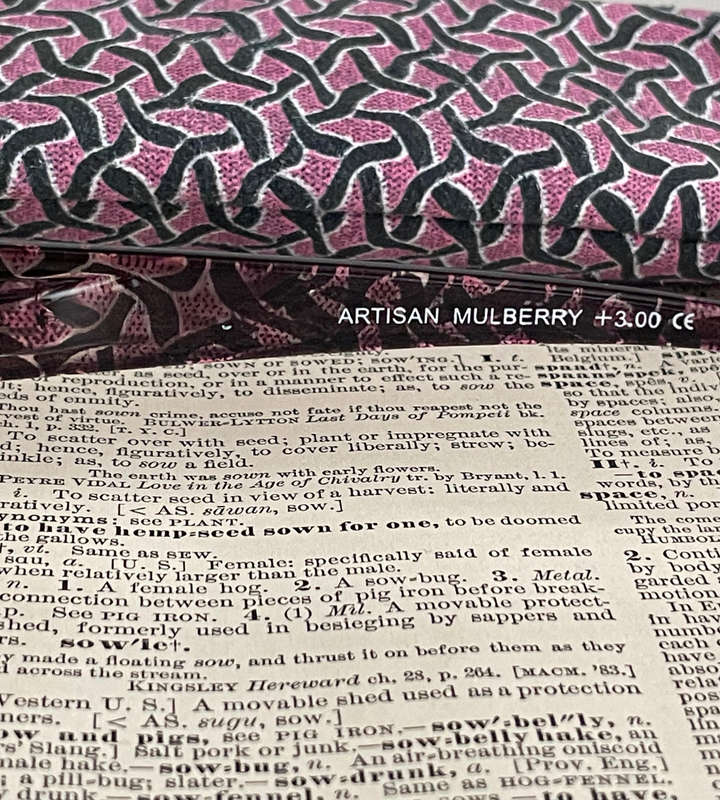 ARTISAN MULBERRY +3.00 CE
SOWN or SOWED; SOW'ING.] I. t.
as seed, over or in the earth, for the pur-
reproduction, or in a manner to effect such a re-
lt; hence, figuratively, to disseminate; as, to sow the
eds of enmity.
Thou hast sown crime, accuse not fate if thou reapest not the
rvest of virtue. BULWER-LYTTON Last Days of Pompeii bk.
ch. 1, p. 332. [T. Y. C.]
To scatter over with seed; plant or impregnate with
d; hence, figuratively, to cover liberally; strew; be-
inkle; as, to sow a field.
The earth was sown with early flowers.
PEYRE VIDAL Love in the Age of Chivalry tr. by Bryant, l. 1.
i. To scatter seed in view of a harvest: literally and
ratively. [< AS. sāwan, sow.]
ynonyms: see PLANT.
to have hemp=seed sown for one, to be doomed
the gallows.
†, vt. Same as SEW.
sau, a. [U. S.] Female: specifically said of female
when relatively larger than the male.
n. 1. A female hog. 2. A sow-bug. 3. Metal.
connection between pieces of pig iron before break-
p. See PIG IRON. 4. (1) Mil. A movable protect-
shed, formerly used in besieging by sappers and
rs. sow'let†.
y made a floating sow, and thrust it on before them as they
d across the stream.
KINGSLEY Hereward ch. 28, p. 264. [MACM. '83.]
Western U. S.] A movable shed used as a protection
ners. [< AS. sugu, sow.]
ow and pigs, see PIG IRON.—sow'=bel"ly, n.
rs' Slang.] Salt pork or junk.—sow=belly hake, an
nale hake.—sow=bug, n. An air-breathing oniscoid
; a pill-bug; slater.—sow=drunk, a. [Prov. Eng.]
y drunk.—sow=fennel, n. Same as HOG-FENNEL.
—to have,
las mineral
Belgium.]
spaad†, n.
space, spês, v.
so that the indiv
by spaces; also,
space columns.
spaces between
slugs, etc., as
lines of; as,
To measure b
II†. i. To
—to sp
words, by th
space, n.
limited por
The com
cupy the la
HUMBOL
2. Conti
by body
garded
motion
In E
in hav
numb
each
have
abso
rela
pos
spa